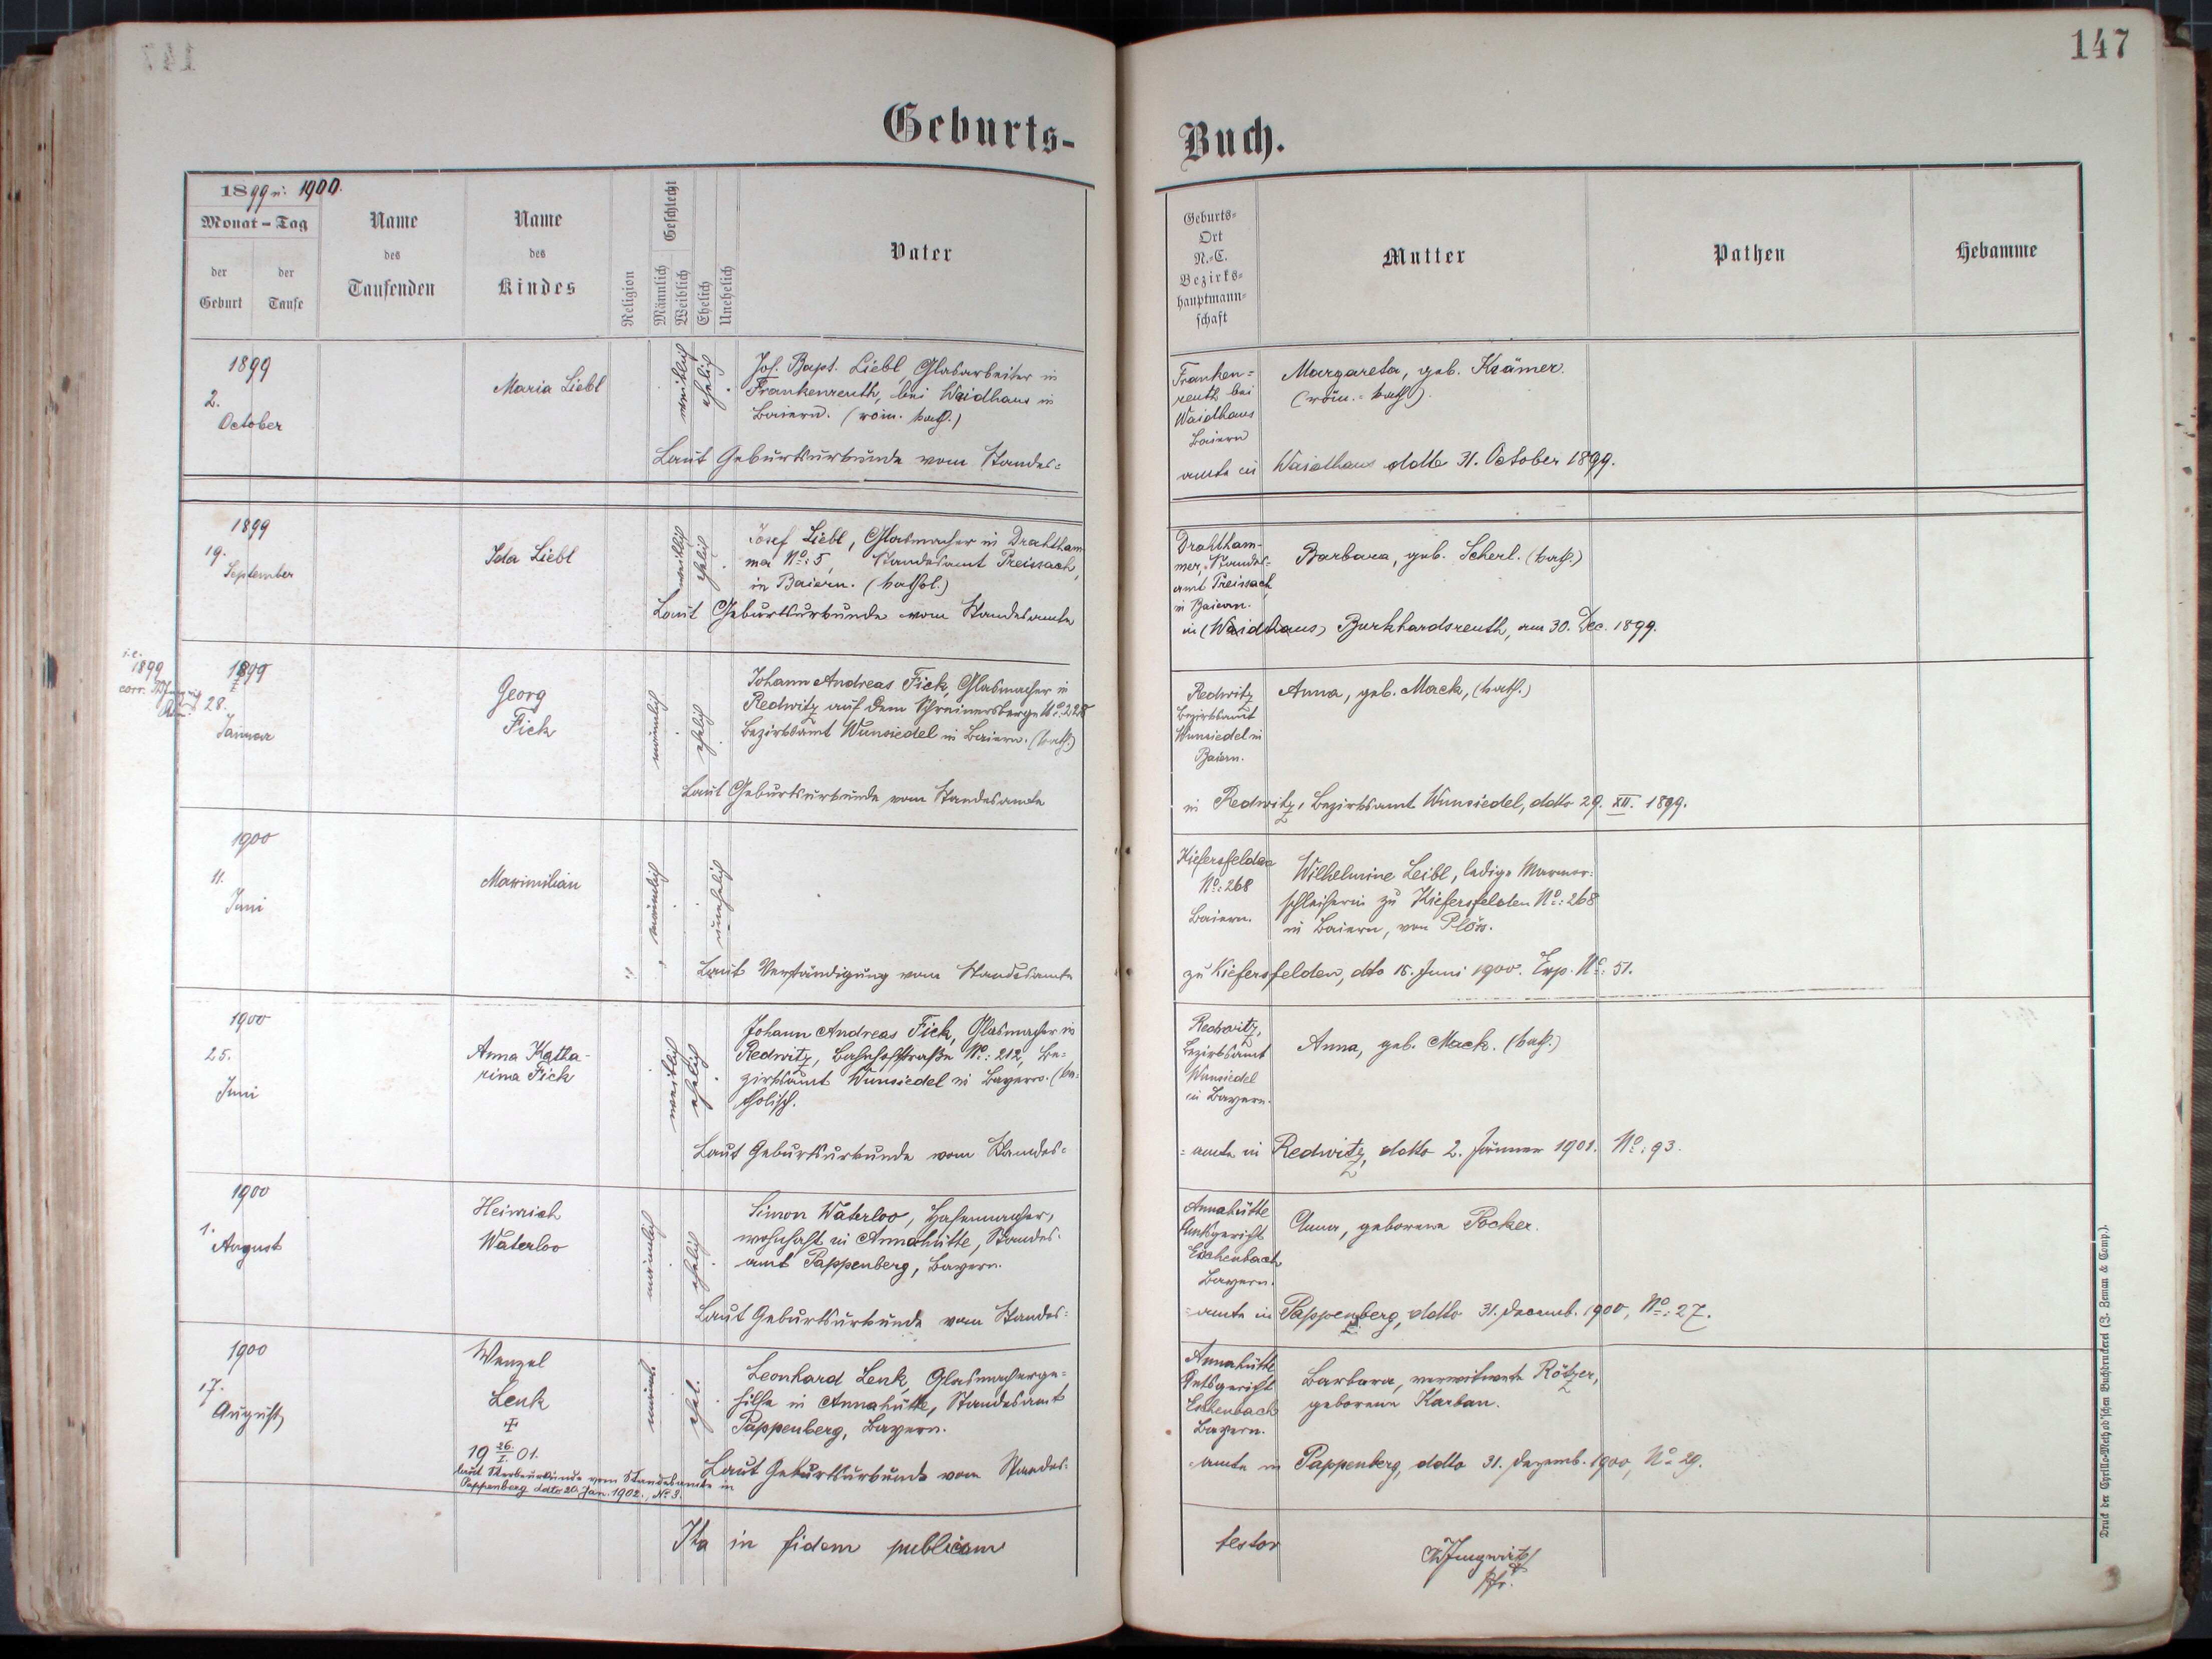 147
Geburts-
Buch.
1899 u: 1900.
Monat - Tag
der
Geburt
der
Taufe
Name
des
Taufenden
Name
des
Kindes
Religion
Geschlecht
Männlich
Weiblich
Ehelich
Unehelich
Vater
Geburts-
Ort
N.-C.
Bezirks-
hauptmann-
schaft
Mutter
Pathen
Hebamme
1899
2.
October
Maria Liebl
weiblich
ehelich
Joh. Bapt. Liebl Glasarbeiter in
Frankenreuth, bei Waidhaus in
Baiern. (röm. kath.)
Laut Geburtsurkunde vom Standes=
Franken=
reuth bei
Waidhaus
Baiern
Margareta, geb. Krämer.
(röm. = kath).
amte in Waidhaus ddto 31. October 1899.
1899
19.
September
Ida Liebl
weiblich
ehelich
Josef Liebl, Glasmacher in Drahtham
mer No: 5, Standesamt Preissach,
in Baiern. (kathol.)
Laut Geburtsurkunde vom Standesamte
Drahtham-
mer, Standes=
amt Preissach
in Baiern.
Barbara, geb. Scherl. (kath.)
in (Waidhaus) Burkhardsreuth, am 30. Dec. 1899.
i.e.
1899
corr.
1899
28.
Jänner
Georg
Fick
männlich
ehelich
Johann Andreas Fick, Glasmacher in
Redwitz auf dem Schreinersberge No: 228
Bezirksamt Wunsiedel in Baiern. (kath.)
Laut Geburtsurkunde vom Standesamte
Redwitz
Bezirksamt
Wunsiedel in
Baiern.
Anna, geb. Mack, (kath.)
in Redwitz, Bezirksamt Wunsiedel, ddto 29. XII. 1899.
1900
11.
Juni
Maximilian
männlich
unehelich
Laut Verständigung vom Standesamte
Kiefersfelden
No: 268
Baiern.
Wilhelmine Leibl, ledige Marmor=
schleiferin zu Kiefersfelden No: 268
in Baiern, von Plöss.
zu Kiefersfelden, dto 15. Juni 1900. Exp. No: 51.
1900
25.
Juni
Anna Katha-
rina Fick
weiblich
ehelich
Johann Andreas Fick, Glasmacher in
Redwitz, Bahnhofstraße No: 212, Be=
zirksamt Wunsiedel in Bayern. (ka=
tholisch.
Laut Geburtsurkunde vom Standes=
Redwitz,
Bezirksamt
Wunsiedel
in Bayern.
Anna, geb. Mack. (kath.)
= amte in Redwitz, ddto 2. Jänner 1901. No: 93.
1900
1.
August
Heinrich
Waterloo
männlich
ehelich
Simon Waterloo, Hafenmacher,
wohnhaft in Annahütte, Standes=
amt Pappenberg, Bayern.
Laut Geburtsurkunde vom Standes=
Annahütte
Amtsgericht
Eschenbach
Bayern.
Anna, geborene Pocker.
= amte in Pappenberg, ddto 31. Decemb. 1900, No: 27.
1900
17.
August
Wenzel
Lenk
†
19 26./I. 01.
laut Sterbeurkunde vom Standesamte in
Pappenberg ddto 20. Jan. 1902., No 3.
männl.
ehel.
Leonhard Lenk, Glasmacherge=
hilfe in Annahütte, Standesamt
Pappenberg, Bayern.
Laut Geburtsurkunde vom Standes=
Annahütte
Amtsgericht
Eschenbach
Bayern.
Barbara, verwitwete Rötzer,
geborene Karban.
amte in Pappenberg, ddto 31. Dezemb. 1900, No 29.
Ita in fidem publicam
testor
Jungwirth
Pfr.
Druck der Cyrillo-Method'schen Buchdruckerei (J. Zeman & Comp.).